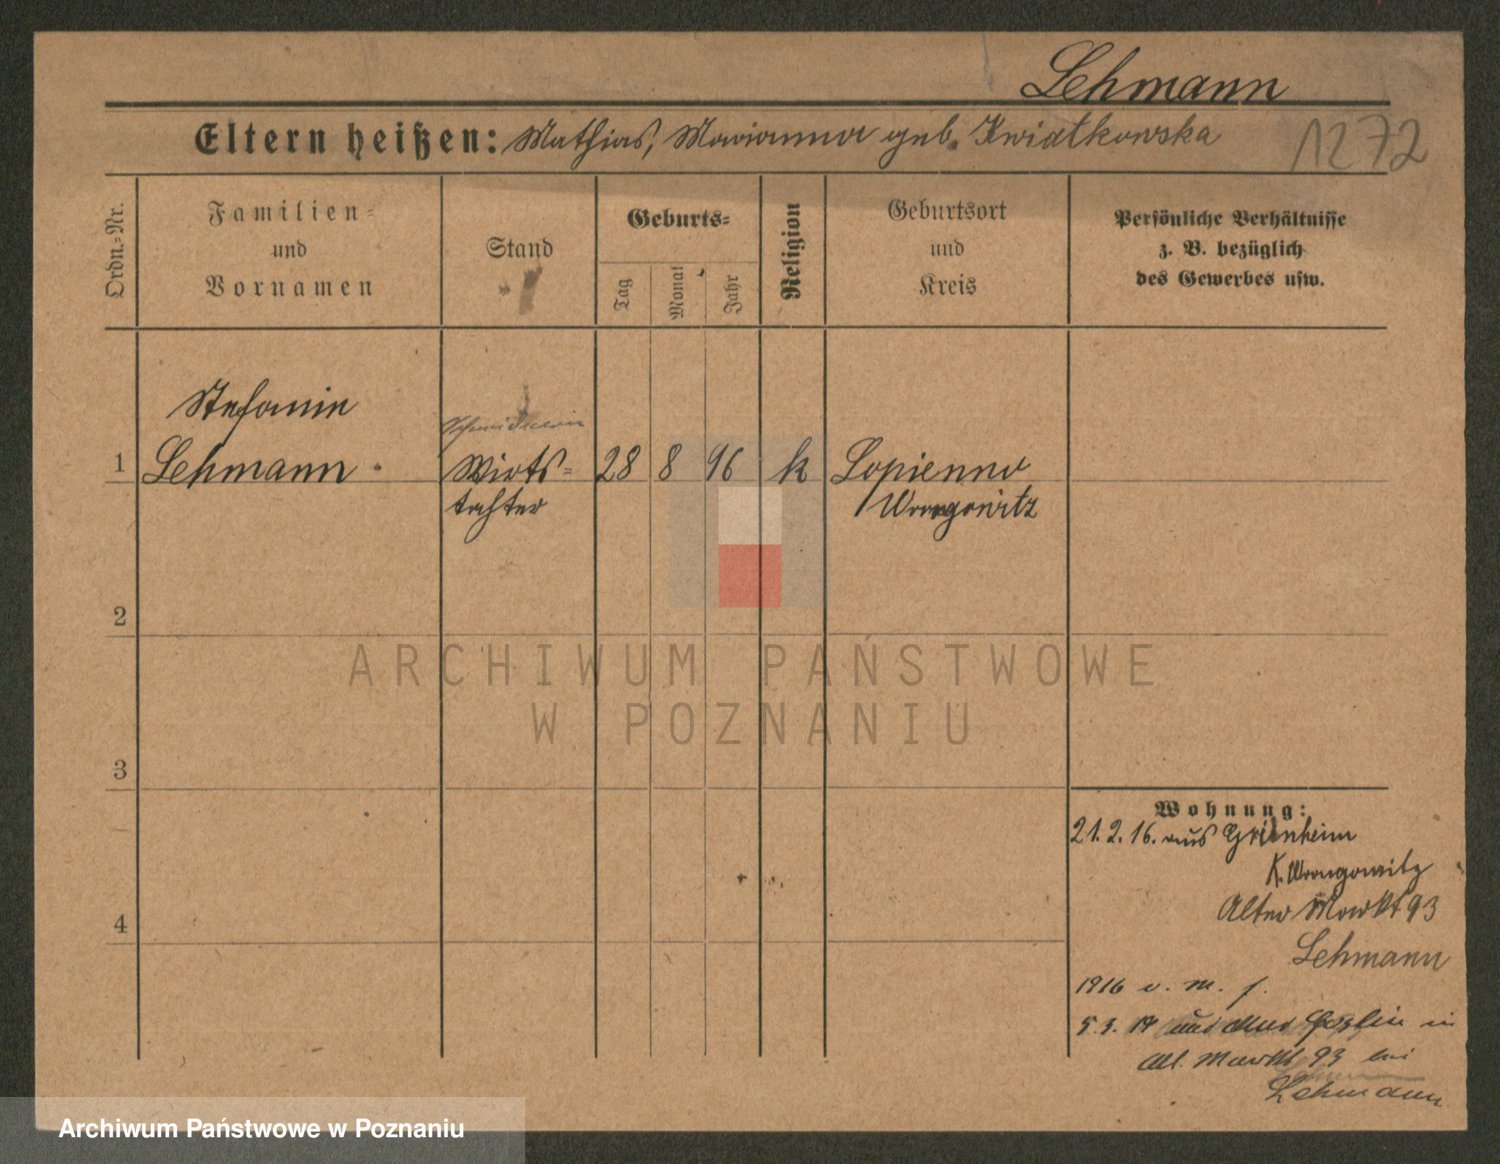 Lehmann
Eltern heißen: Mathias, Marianna geb. Kwiatkowska
1272
Ordn.-Nr.
Familien-
und
Vornamen
Stand
Geburts-
Tag
Monat
Jahr
Religion
Geburtsort
und
Kreis
Persönliche Verhältnisse
z. B. bezüglich
des Gewerbes usw.
Stefanie
Schneiderin
1 Lehmann Wirts- 28 8 96 k Lopienno
tochter Wongrowitz
2
3
4
Wohnung:
21. 2. 16. aus Grünheim
K. Wongrowitz
Alter Markt 93
Lehmann
1916 v. m. f.
5. 3. 17 in
Alt. Markt 93 bei
Lehmann
ARCHIWUM PAŃSTWOWE
W POZNANIU
Archiwum Państwowe w Poznaniu